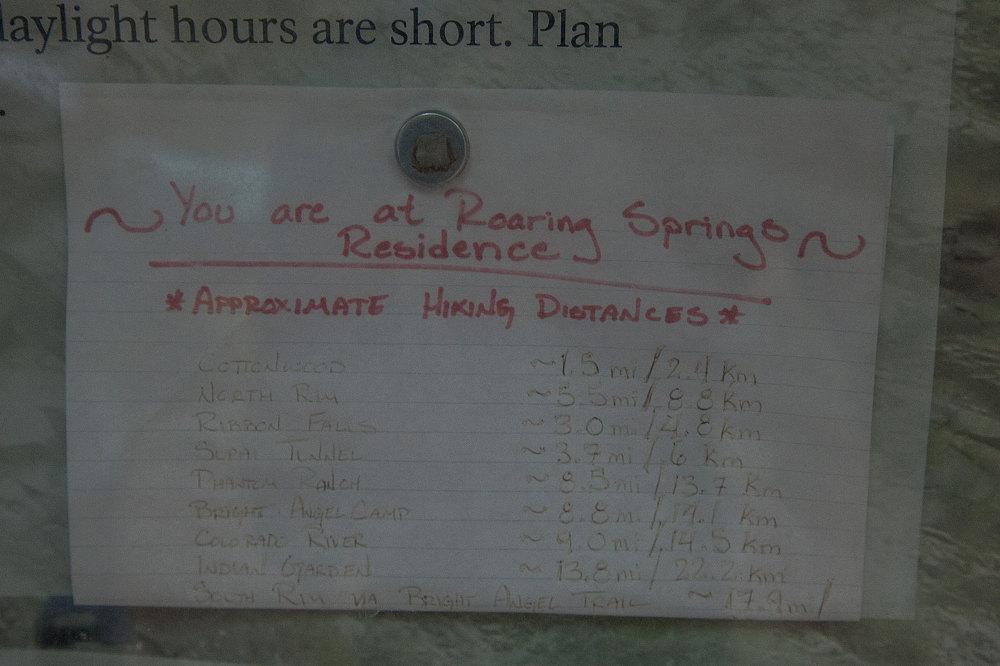 daylight hours are short. Plan
.
~ You are at Roaring Springs ~
Residence
* APPROXIMATE HIKING DISTANCES *
COTTONWOOD ~1.5 mi / 2.4 Km
NORTH RIM ~5.5 mi / 8.8 Km
RIBBON FALLS ~3.0 mi / 4.8 Km
SUPAI TUNNEL ~3.7 mi / 6 Km
PHANTOM RANCH ~8.5 mi / 13.7 Km
BRIGHT ANGEL CAMP ~8.8 mi / 14.1 Km
COLORADO RIVER ~9.0 mi / 14.5 Km
INDIAN GARDEN ~13.8 mi / 22.2 Km
SOUTH RIM VIA BRIGHT ANGEL TRAIL ~